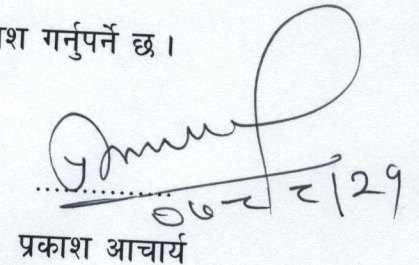 श गर्नुपर्ने छ ।
०७८|८|२१
प्रकाश आचार्य